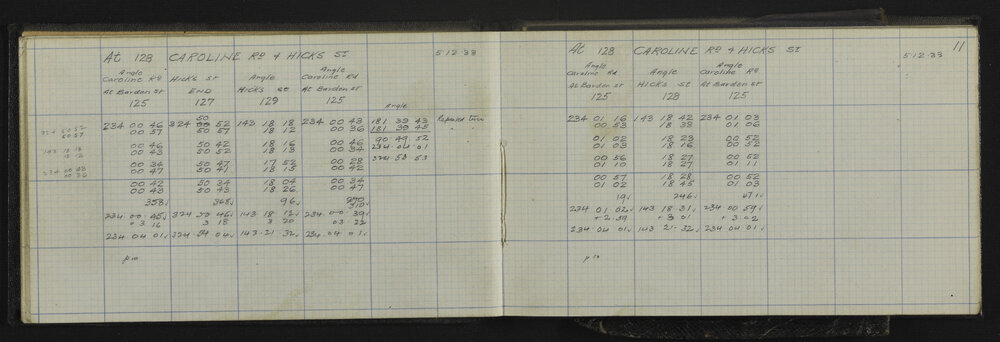 At 128 CAROLINE RD & HICKS ST 5.12.33
Angle Angle Angle
Caroline Rd Hick's St Angle Caroline Rd
At Barden St END Hicks St At Barden St
125 127 129 125
Angle
234 00 46 324 50 52 143 18 18 234 00 43 181 39 43 Repeated twice
00 57 50 57 18 12 00 36 181 39 45
00 46 50 42 18 16 00 46 90 49 52
00 43 50 52 18 13 00 34 234 04 01
00 34 50 47 17 52 00 28 324 53 53
00 47 50 41 18 13 00 42
00 42 50 34 18 04 00 34
00 43 50 43 18 26 00 47
358 368 96 310
234 00 45 324 50 46 143 18 12 234 00 39
+ 3 16 3 18 3 20 03 22
234 04 01 324 54 04 143 21 32 234 04 01
pm
11
At 128 CAROLINE RD & HICKS ST 5.12.33
Angle Angle
Caroline Rd Angle Caroline Rd
At Barden St Hicks St At Barden St
125 128 125
234 01 16 143 18 42 234 01 03
00 53 18 38 01 06
01 02 18 23 00 52
01 03 18 16 00 52
00 56 18 27 00 52
01 10 18 27 01 11
00 57 18 28 00 52
01 02 18 45 01 03
19 246 471
234 01 02 143 18 31 234 00 59
+ 2 59 + 3 01 + 3 02
234 04 01 143 21 32 234 04 01
pm